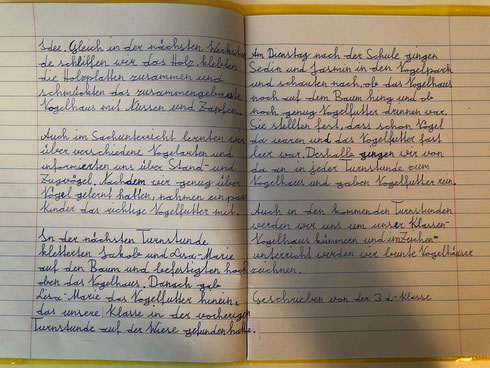 Idee. Gleich in der nächsten Werkstun
de schliffen wir das Holz, klebten
die Holzplatten zusammen und
schmückten das zusammengebaute
Vogelhaus mit Nüssen und Zapfen.
Auch im Sachunterricht lernten wir
über verschiedene Vogelarten und
informierten uns über Stand- und
Zugvögel. Nachdem wir genug über
Vögel gelernt hatten, nahmen ein paar
Kinder das richtige Vogelfutter mit.
In der nächsten Turnstunde
kletterten Jakob und Lisa-Marie
auf den Baum und befestigten hoch
oben das Vogelhaus. Danach gab
Lisa-Marie das Vogelfutter hinein,
das unsere Klasse in der vorherigen
Turnstunde auf der Wiese gefunden hatte.
Am Dienstag nach der Schule gingen
Sedin und Jasmin in den Vogelpark
und schauten nach, ob das Vogelhaus
noch auf dem Baum hing und ob
noch genug Vogelfutter drinnen war.
Sie stellten fest, dass schon Vögel
da waren und das Vogelfutter fast
leer war. Deshalb gingen wir von
da an in jeder Turnstunde zum
Vogelhaus und gaben Vogelfutter rein.
Auch in den kommenden Turnstunden
werden wir uns um unser Klassen-
Vogelhaus kümmern und im Zeichen-
unterricht werden wir bunte Vogelhäuser
zeichnen.
Geschrieben von der 3.-Klasse